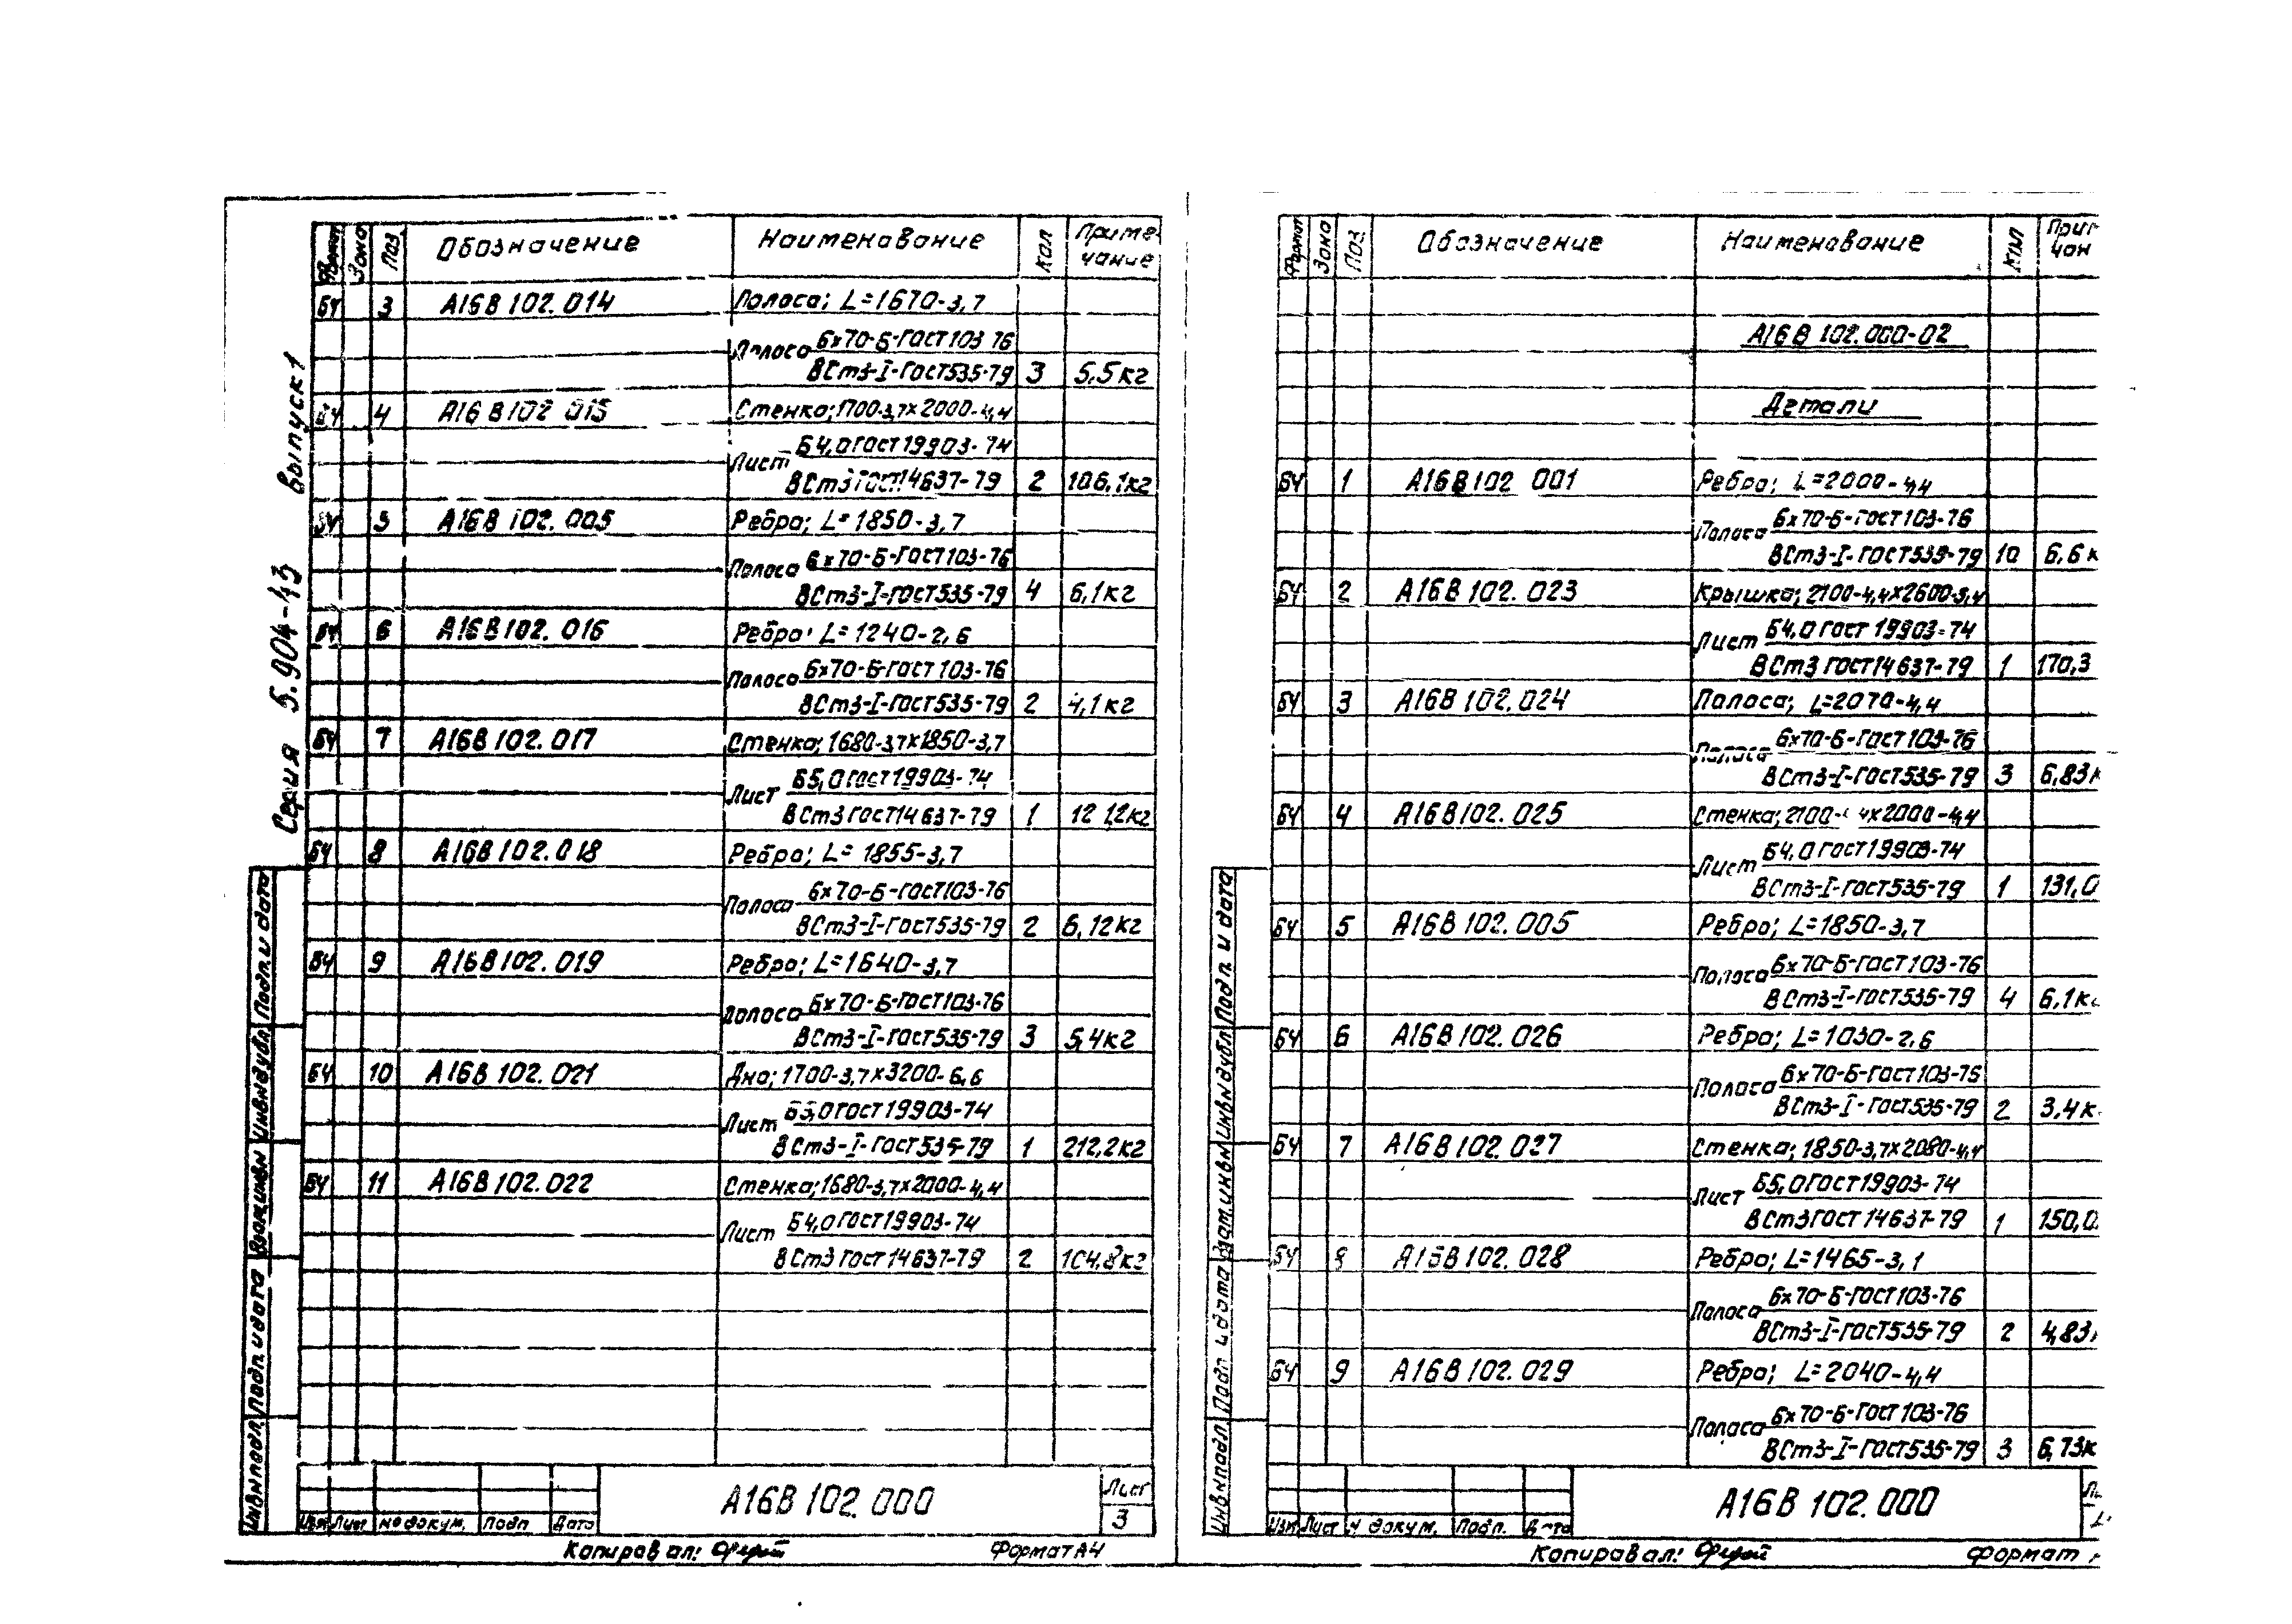 Серия 5.904-43 Выпуск 1
Формат Зона Поз. Обозначение Наименование Кол Приме чание
БЧ 3 А16В 102.014 Полоса; L=1670-3,7
Полоса 6х70-Б-ГОСТ 103-76
ВСт3-I-ГОСТ535-79 3 5,5кг
БЧ 4 А16В102 015 Стенка; 1700-3,7х2000-4,4
Лист Б4,0 ГОСТ 19903-74
ВСт3 ГОСТ14637-79 2 106,1кг
БЧ 5 А16В 102.005 Ребро; L=1850-3,7
Полоса 6х70-Б-ГОСТ103-76
ВСт3-I-ГОСТ535-79 4 6,1кг
БЧ 6 А16В102. 016 Ребро; L=1240-2,6
Полоса 6х70-Б-ГОСТ 103-76
ВСт3-I-ГОСТ535-79 2 4,1кг
БЧ 7 А16В 102.017 Стенка; 1680-3,7х1850-3,7
Лист Б5,0 ГОСТ19903-74
ВСт3 ГОСТ14637-79 1 121,2кг
БЧ 8 А16В102.018 Ребро; L= 1855-3,7
Полоса 6х70-Б-ГОСТ103-76
ВСт3-I-ГОСТ535-79 2 6,12кг
БЧ 9 А16В102.019 Ребро; L=1640-3,7
Полоса 6х70-Б-ГОСТ103-76
ВСт3-I-ГОСТ535-79 3 5,4кг
БЧ 10 А16В 102.021 Дно; 1700-3,7х3200-6,6
Лист Б5,0 ГОСТ19903-74
ВСт3-I-ГОСТ535-79 1 212,2кг
БЧ 11 А16В102.022 Стенка; 1680-3,7х2000-4,4
Лист Б4,0 ГОСТ19903-74
ВСт3 ГОСТ 14637-79 2 104,8кг
Инв.№подл. Подп. и дата Взам.инв№ Инв№дубл. Подп. и дата
Изм Лист № докум. Подп Дата
А16В 102.000
Лист
3
Копировал:
Формат А4
Формат Зона Поз Обозначение Наименование Кол Прим чан
А16В 102.000-02
Детали
БЧ 1 А16В102 001 Ребро; L=2000-4,4
Полоса 6х70-Б-ГОСТ103-76
ВСт3-I-ГОСТ535-79 10 6,6к
БЧ 2 А16В 102. 023 Крышка; 2100-4,4х2600-5,4
Лист Б4,0 ГОСТ 19903-74
ВСт3 ГОСТ14637-79 1 170,3
БЧ 3 А16В 102.024 Полоса; L=2070-4,4
Полоса 6х70-Б-ГОСТ103-76
ВСт3-I-ГОСТ535-79 3 6,83к
БЧ 4 А16В102. 025 Стенка; 2100-4,4х2000-4,4
Лист Б4,0 ГОСТ19903-74
ВСт3-I-ГОСТ535-79 1 131,0
БЧ 5 А16В 102.005 Ребро; L=1850-3,7
Полоса 6х70-Б-ГОСТ103-76
ВСт3-I-ГОСТ535-79 4 6,1кг
БЧ 6 А16В102. 026 Ребро; L=1030-2,6
Полоса 6х70-Б-ГОСТ103-76
ВСт3-I-ГОСТ535-79 2 3,4к
БЧ 7 А16В102. 027 Стенка; 1850-3,7х2080-4,4
Лист Б5,0 ГОСТ19903-74
ВСт3 ГОСТ 14637-79 1 150,0
БЧ 8 А16В102. 028 Ребро; L=1465-3,1
Полоса 6х70-Б-ГОСТ103-76
ВСт3-I-ГОСТ535-79 2 4,83
БЧ 9 А16В102. 029 Ребро; L=2040-4,4
Полоса 6х70-Б-ГОСТ 103-76
ВСт3-I-ГОСТ535-79 3 6,73к
Инв№подл. Подп и дата Взам.инв№ Инв№дубл. Подп. и дата
Изм Лист № докум. Подп. Дата
А16В 102.000
Копировал:
Формат